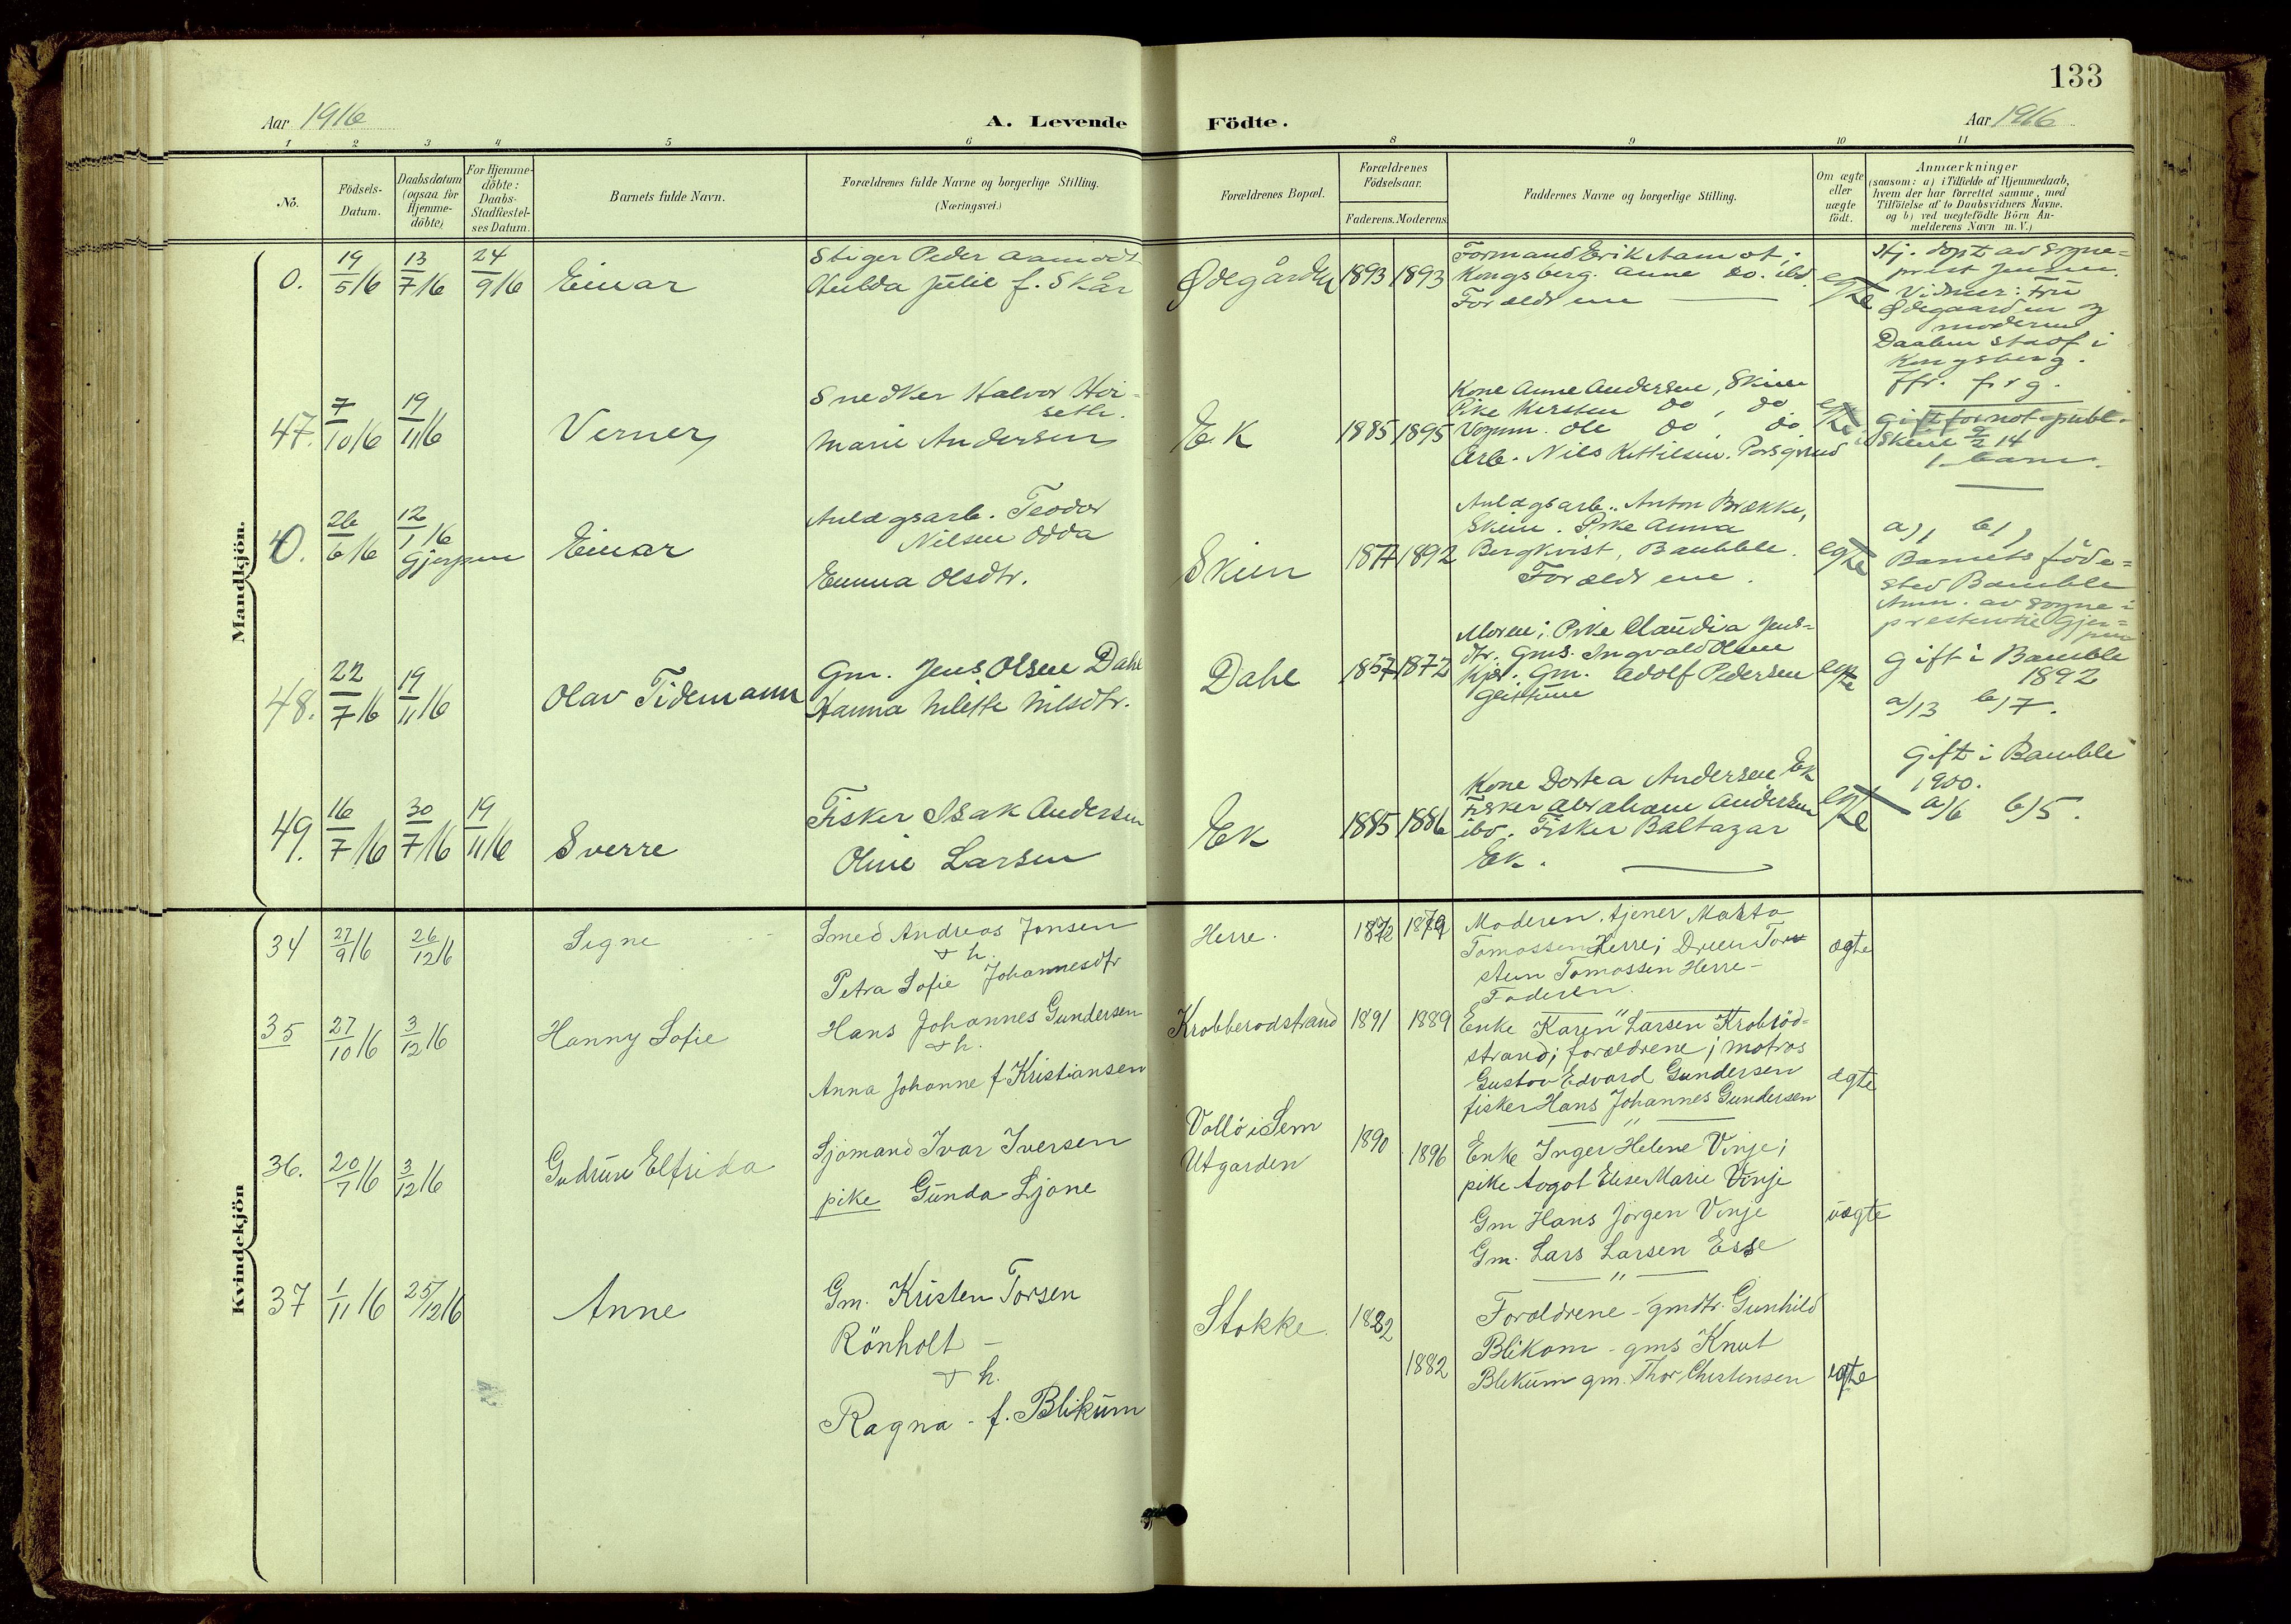 133
Aar 1916
A. Levende Födte.
Aar 1916
1 2 3 4 5 6 8 9 10 11
No.
Födsels-Datum.
Daabsdatum (ogsaa for Hjemme-döbte)
For Hjemme-döbte: Daabs-Stadfæstel-ses Datum.
Barnets fulde Navn.
Forældrenes fulde Navne og borgerlige Stilling.
(Næringsvei.)
Forældrenes Bopæl.
Forældrenes Födselsaar.
Faderens. Moderens.
Faddernes Navne og borgerlige Stilling.
Om ægte eller uægte födt.
Anmærkninger
(saasom: a) i Tilfælde af Hjemmedaab,
hvem der har forrettet samme, med
Tilföielse af to Daabsvidners Navne.
og b) ved uægtefödte Börn An-
melderens Navn m. V.)
Mandkjön.
0. 19/5 16 13/7 16 24/9 16 Einar
Stiger Peder Aamodt
Hulda Julie f. Skår
Ødegården 1893 1893
Formand Erik Aamot;
Kongsberg. Anne do. ibd.
Forældrene
egte
Hj. døpt av sogne=
prest Jensen.
Vidner: Fru
Ødegaarden og
moderen
Daaben stadf i
Kongsberg.
47. 7/10 16 19/11 16 Verner
Snedker Halvor Hei-
seth.
Marie Andersen
Ek 1885 1895
Kone Anne Andersen, Skien
Pike Kirsten do, do
Ole do, do
Arb. Nils Kittilsen. Porsgrund
egte
Gift for not. publ.
Skien 2/2 14
1. barn.
0. 26/6 16 12/1 16 Gjerpen Einar
Anlægsarb. Teodor
Nilsen Odda
Emma Olsdtr.
Skien 1877 1892
Anlægsarb. Anton Brække,
Skien. Pike Anna
Bergkvist, Bambble.
Forældrene.
egte
a), b),
Barnets föde=
sted Bamble
Anm. av sogne=
presten i Gjer=
pen
48. 22/7 16 19/11 16 Olav Tidemann
Gm. Jens Olsen Dahl
Hanna Nilette Nilsdtr.
Dahl 1857 1872
Moren; Pike Claudia Jens=
dtr. Gms. Ingvald Olsen
Kjær. Gm. Adolf Pedersen
egte
Gift i Bamble
1892
a)13 b)7.
49. 16/7 16 30/7 16 19/11 16 Sverre
Fisker Isak Andersen
Oline Larsen
Ek 1885 1886
Kone Dortea Andersen Ek
Fisker Abraham Andersen
ibd. Fisker Baltazar
Ek.
egte
Gift i Bamble
1900.
a)6 b)5.
Kvindekjön
34 27/9 16 26/12 16 Signe
Smed Andreas Jonsen
& h.
Petra Sofie Johannesdtr
Herre. 1872 1879
Moderen, tjener Marta
Tomassen Herre; Dreier Tor
stein Tomassen Herre-
Faderen.
ægte
35 27/10 16 3/12 16 Hanny Sofie
Hans Johannes Gundersen
& h.
Anna Johanne f Kristiansen
Krobberodstrand 1891 1889
Enke Karen Larsen Krobröd=
strand; forældrene; matros
Gustav Edvard Gundersen
fisker Hans Johannes Gundersen
ægte
36. 20/7 16 3/12 16 Gudrun Elfrida
Sjømand Ivar Iversen
pike Gunda Ljane
Vallö i Sem
Utgarden
1890 1896
Enke Inger Helene Vinje;
pike Aagot Elise Marie Vinje
Gm Hans Jörgen Vinje
Gm. Lars Larsen Esse
uægte
37 1/11 16 25/12 16 Anne
Gm. Kristen Torsen
Rönholt -
& h.
Ragna - f. Blikum
Stokke. 1882 1882
Forældrene - gmdtr. Gunhild
Blikom - gms Knut
Blekum gm. Thor Christensen
egte